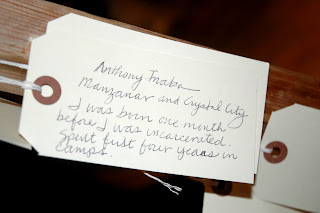 Anthony Inaba
Manzanar and Crystal City
I was born one month
before I was incarcerated.
Spent first four years in
camps.